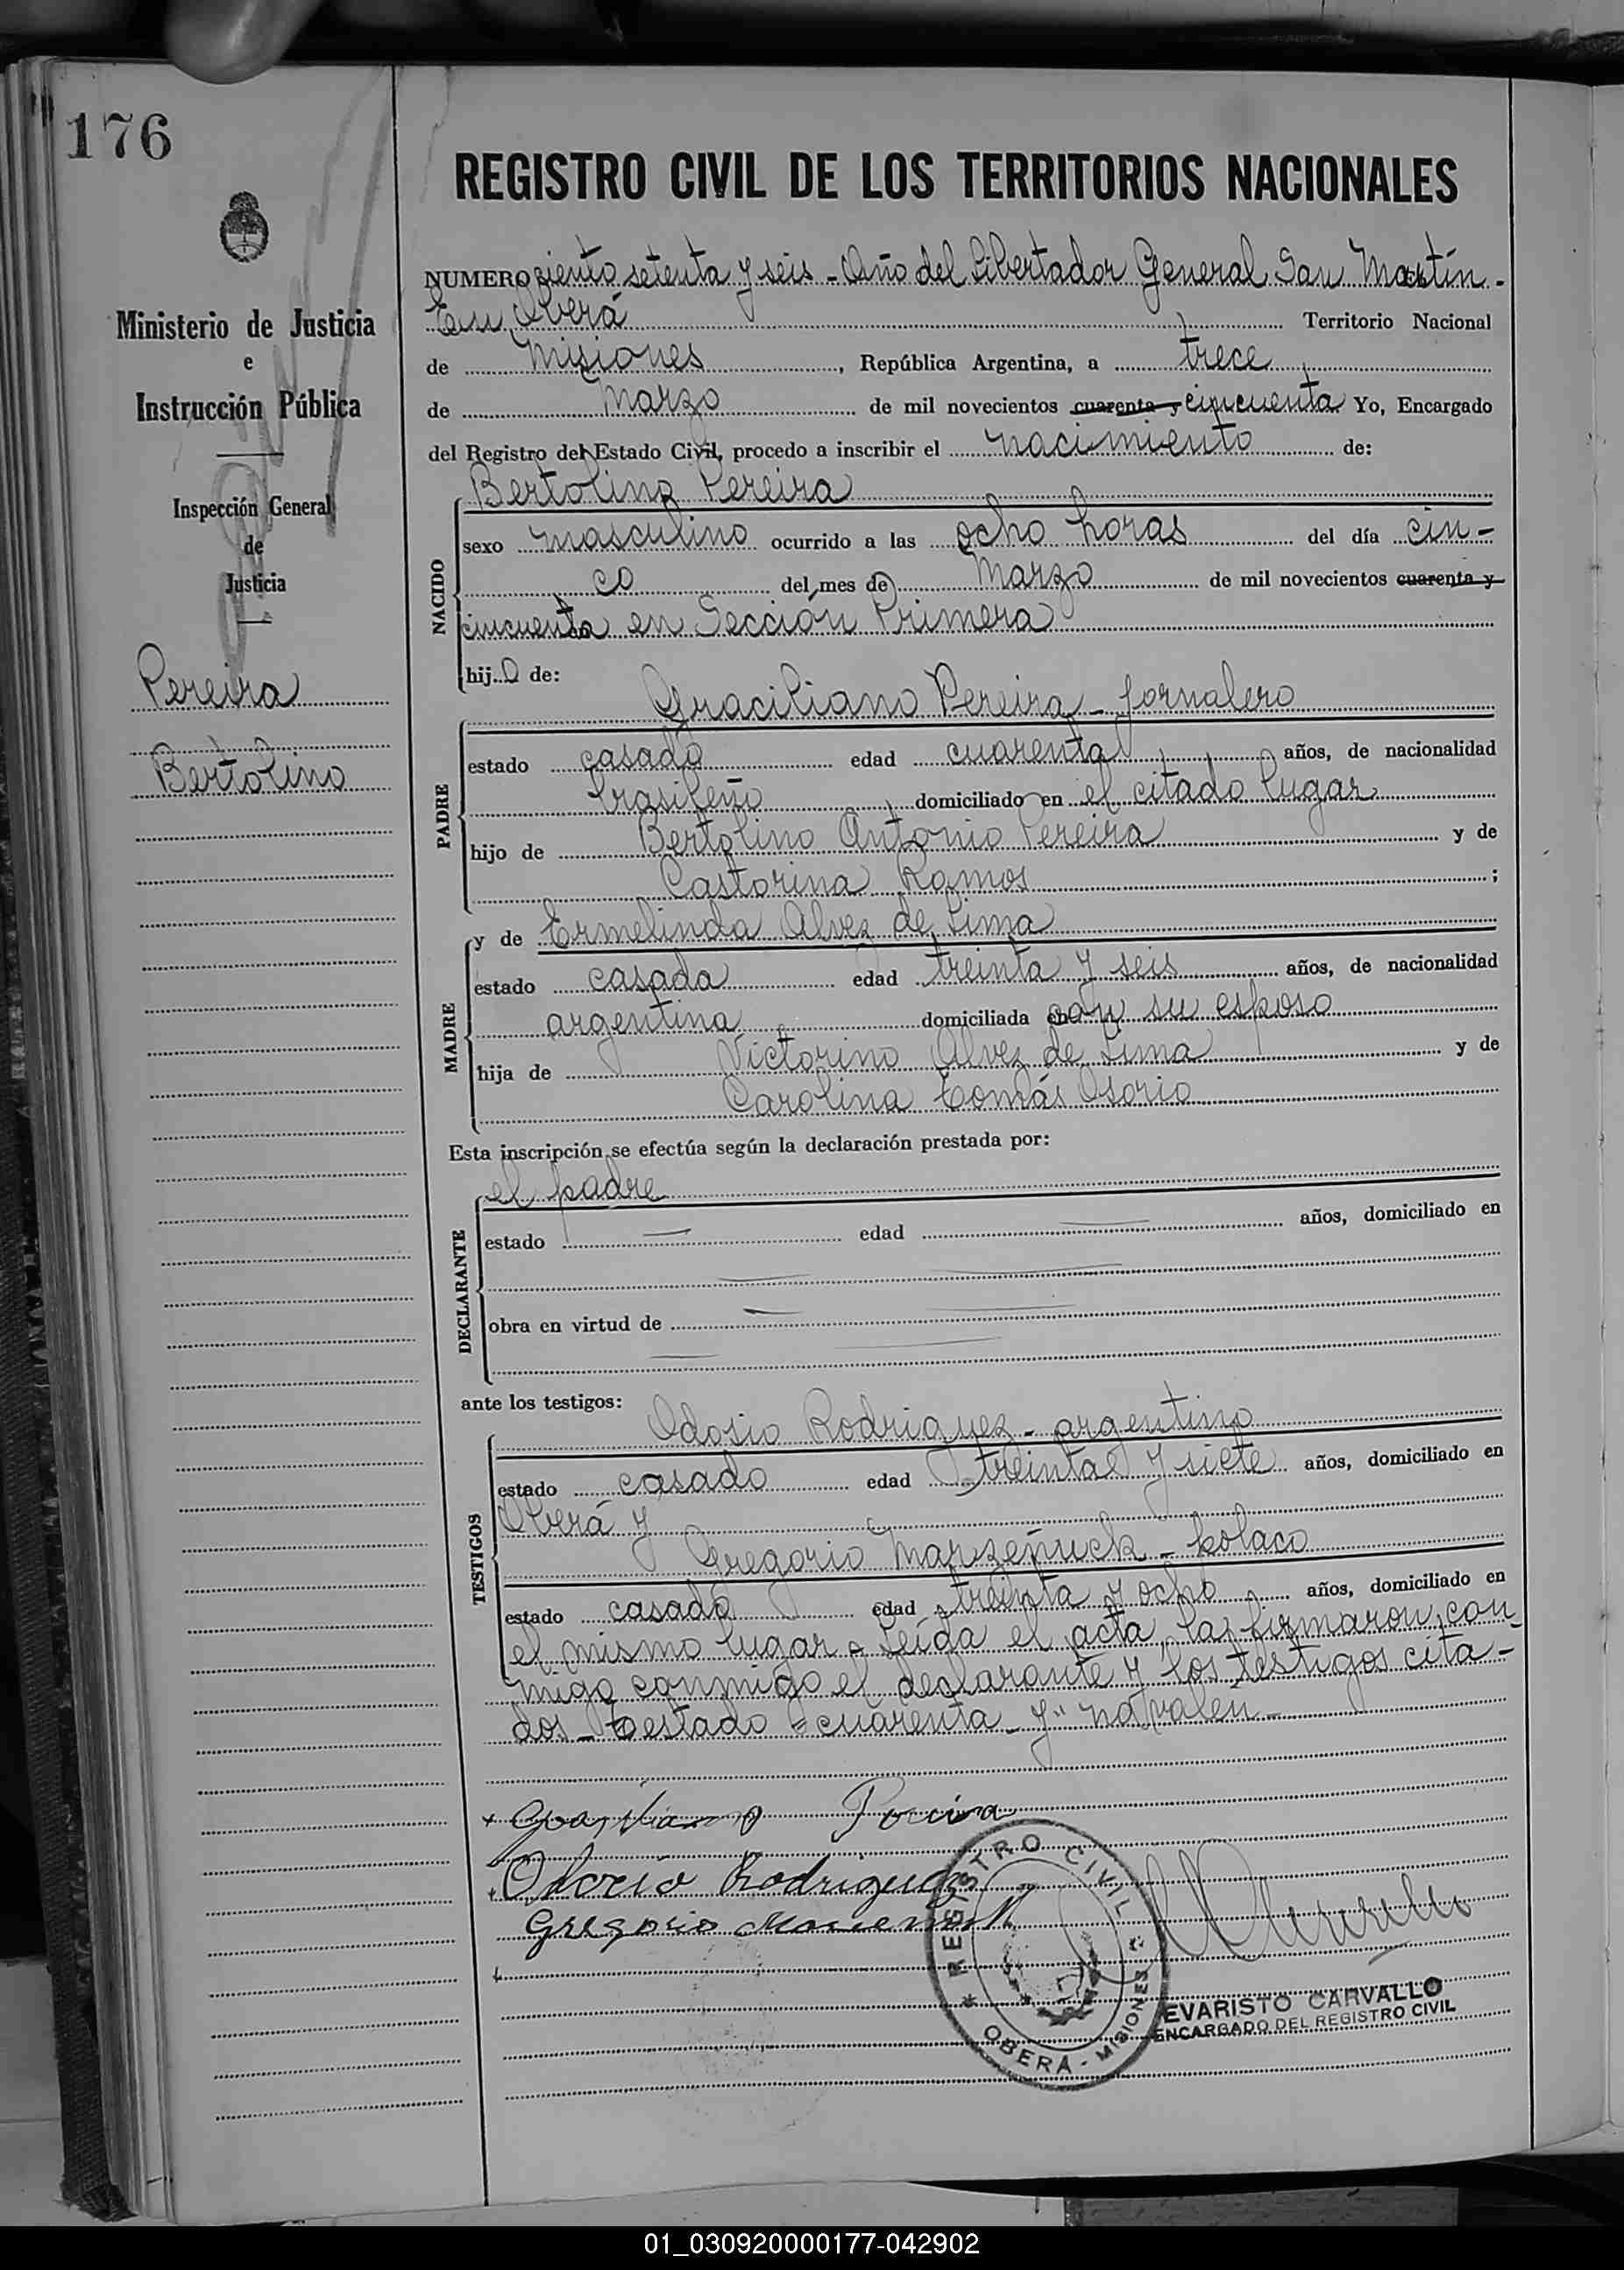 176
REGISTRO CIVIL DE LOS TERRITORIOS NACIONALES
Ministerio de Justicia
e
Instrucción Pública
Inspección General
de
Justicia
Pereira
Bertolino
NUMERO ciento setenta y seis - Año del Libertador General San Martín -
En Oberá Territorio Nacional
de Misiones, República Argentina, a trece
de Marzo de mil novecientos cuarenta y cincuenta Yo, Encargado
del Registro del Estado Civil, procedo a inscribir el nacimiento de:
Bertolino Pereira
NACIDO
sexo masculino ocurrido a las ocho horas del día cin-
co del mes de Marzo de mil novecientos cuarenta y
cincuenta en Sección Primera
hijo de:
Graciliano Pereira - Jornalero
PADRE
estado casado edad cuarenta años, de nacionalidad
brasileño domiciliado en el citado lugar
hijo de Bertolino Antonio Pereira y de
Castorina Ramos ;
y de Ermelinda Alvez de Lima
MADRE
estado casada edad treinta y seis años, de nacionalidad
argentina domiciliada con su esposo
hija de Victorino Alvez de Lima y de
Carolina Tomás Osorio
Esta inscripción se efectúa según la declaración prestada por:
el padre
DECLARANTE
estado — edad — años, domiciliado en
obra en virtud de —
ante los testigos:
Odosio Rodriguez - argentino
TESTIGOS
estado casado edad treinta y siete años, domiciliado en
Oberá y
Gregorio - polaco
estado casado edad treinta y ocho años, domiciliado en
el mismo lugar - Leída el acta, la firmaron con
migo conmigo el declarante y los testigos cita-
dos - Testado "cuarenta - y" no valen -
Pereira
Rodriguez
Gregorio
REGISTRO CIVIL
OBERÁ - MISIONES
EVARISTO CARVALLO
ENCARGADO DEL REGISTRO CIVIL
01_030920000177-042902